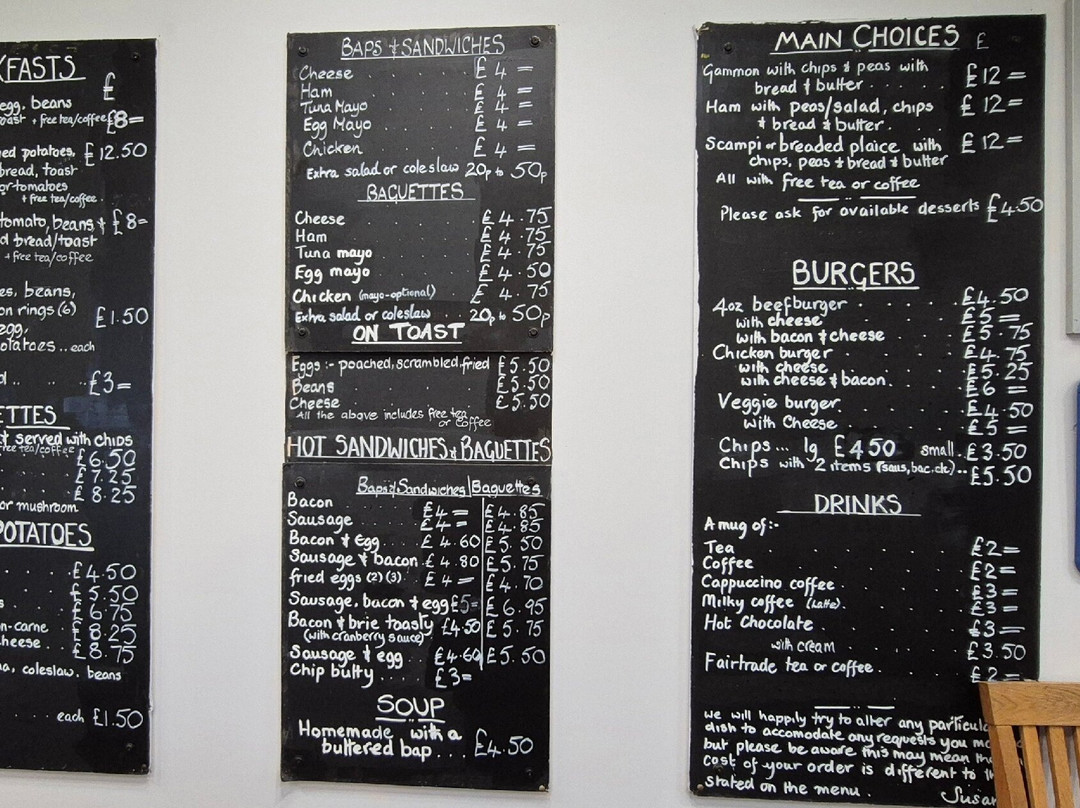 FASTS
£
egg, beans
oast + free tea/coffee £8=
ed potatoes, £12.50
bread, toast
or tomatoes
+ free tea/coffee.
tomato, beans, & £8=
d bread/toast
+ free tea/coffee
es, beans,
on rings (6) £1.50
egg,
otatoes.. each
£3=
ETTES
t served with chips
free tea/coffee
£6.50
£7.25
£8.25
or mushroom
POTATOES
£4.50
£5.50
£6.75
n-carne £8.25
cheese £8.75
coleslaw, beans
each £1.50
BAPS & SANDWICHES
Cheese £4=
Ham £4=
Tuna Mayo £4=
Egg Mayo £4=
Chicken £4=
Extra salad or coleslaw 20p to 50p
BAGUETTES
Cheese £4.75
Ham £4.75
Tuna mayo £4.75
Egg mayo £4.50
Chicken (mayo-optional) £4.75
Extra salad or coleslaw 20p to 50p
ON TOAST
Eggs:- poached, scrambled, fried £5.50
Beans £5.50
Cheese £5.50
All the above includes free tea
or coffee
HOT SANDWICHES & BAGUETTES
Baps & Sandwiches Baguettes
Bacon £4= £4.85
Sausage £4= £4.85
Bacon & Egg £4.60 £5.50
Sausage & bacon £4.80 £5.75
fried eggs (2) (3) £4= £4.70
Sausage, bacon & egg £5= £6.95
Bacon & brie toasty £4.50 £5.75
(with cranberry sauce)
Sausage & egg £4.60 £5.50
Chip butty £3=
SOUP
Homemade with a
buttered bap... £4.50
MAIN CHOICES £
Gammon with chips & peas with £12=
bread & butter
Ham with peas/salad, chips £12=
& bread & butter.
Scampi or breaded plaice with £12=
chips, peas & bread & butter
All with free tea or coffee
Please ask for available desserts £4.50
BURGERS
4oz beefburger £4.50
with cheese £5=
with bacon & cheese £5.75
Chicken burger £4.75
with cheese £5.25
with cheese & bacon. £6=
Veggie burger. £4.50
with Cheese £5=
Chips... lg £4.50 small. £3.50
Chips with 2 items (saus, bac. etc).. £5.50
DRINKS
A mug of:-
Tea £2=
Coffee £2=
Cappuccino coffee. £3=
Milky coffee (Latte). £3=
Hot Chocolate £3=
with cream £3.50
Fairtrade tea or coffee. £2=
We will happily try to alter any particul
dish to accomodate any requests you m
but please be aware this may mean th
cost of your order is different to
stated on the menu.
Susan